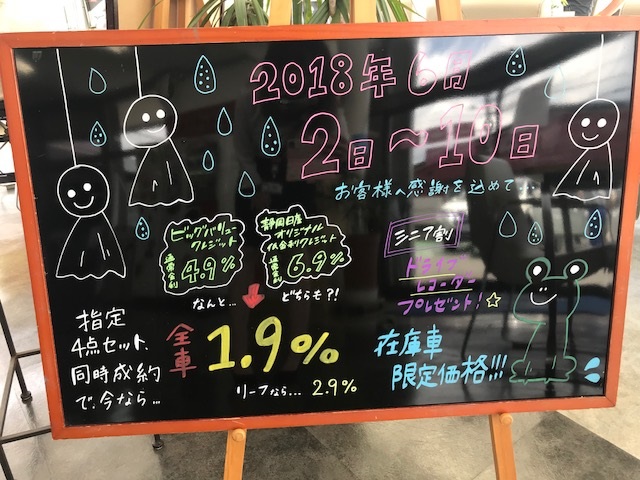 2018年6月
2日〜10日
お客様へ感謝を込めて…
ビッグバリュー
クレジット
通常金利
4.9%
静岡日産
オリジナル
低金利クレジット
通常金利
6.9%
なんと… どちらも?!
シニア割
ドライブ
レコーダー
プレゼント!☆
指定
4点セット、
同時成約
で、今なら…
全車
1.9%
リーフなら… 2.9%
在庫車
限定価格!!!